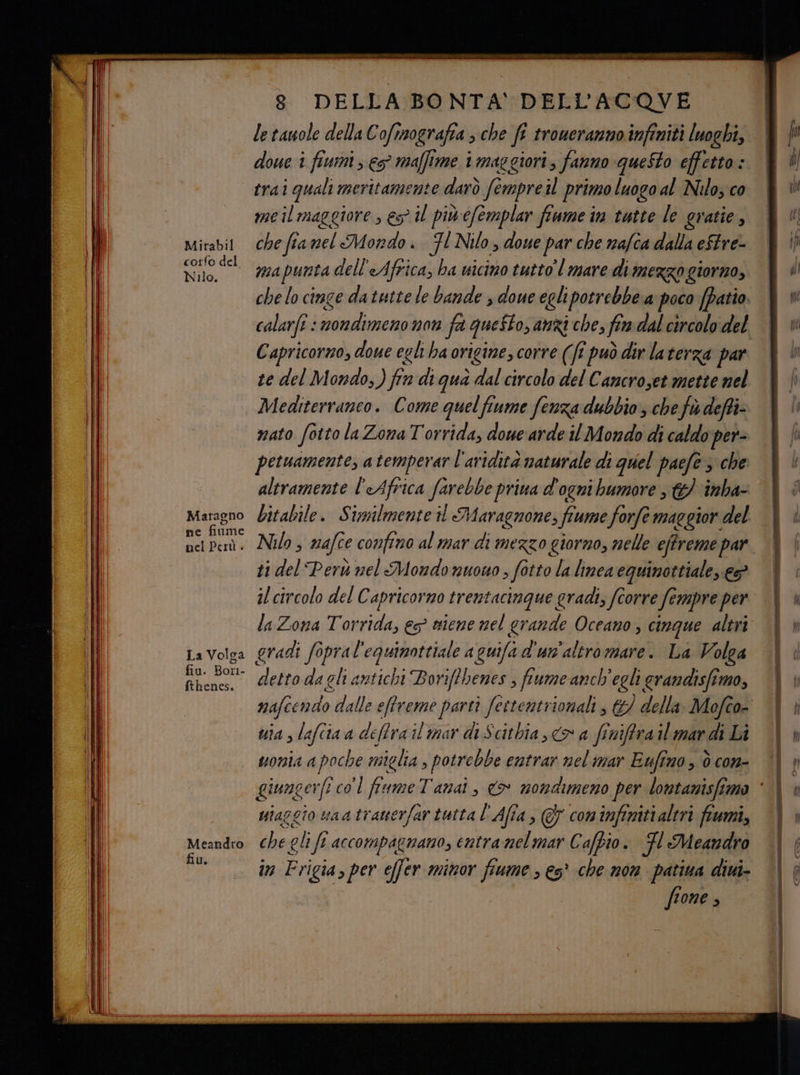 8 DELLA BONTA' DELL'ACQVE
le tauole della Cosmografia, che si troueranno infiniti luoghi,
doue i fiumi, & massime i maggiori, fanno questo effetto:
trai quali meritamente darò sempre il primo luogo al Nilo, co
me il maggiore, & il più esemplar fiume in tutte le gratie,
Mirabil corso del Nilo.
che sia nel Mondo. Il Nilo, doue par che nasca dalla estre-
ma punta dell'Africa, ha uicino tutto'l mare di mezzo giorno,
che lo cinge da tutte le bande, doue egli potrebbe a poco spatio
calarsi: nondimeno non fa questo, anzi che, fin dal circolo del
Capricorno, doue egli ha origine, corre (si può dir la terza par
te del Mondo,) fin di quà dal circolo del Cancro, et mette nel
Mediterraneo. Come quel fiume senza dubbio, che fù desti-
nato sotto la Zona Torrida, doue arde il Mondo di caldo per-
petuamente, a temperar l'aridità naturale di quel paese, che
altramente l'Africa sarebbe priua d'ogni humore, & inha-
Maragno ne fiume nel Perù.
bitabile. Similmente il Maragnone, fiume forse maggior del
Nilo, nasce confino al mar di mezzo giorno, nelle estreme par
ti del Perù nel Mondo nuouo, sotto la linea equinottiale, &
il circolo del Capricorno trentacinque gradi, scorre sempre per
la Zona Torrida, & uiene nel grande Oceano, cinque altri
La Volga fiu. Bori- sthenes.
gradi sopra l'equinottiale a guisa d'un'altro mare. La Volga
detto da gli antichiBoristhenes, fiume anch'egli grandissimo,
nascendo dalle estreme parti settentrionali, & della Mosco-
uia, lascia a destra il mar di Scithia, & a sinistra il mar di Li
uonia a poche miglia, potrebbe entrar nel mar Eusino, ò con-
giungersi co'l fiume Tanai, & nondimeno per lontanissimo
uiaggio ua a trauersar tutta l'Asia, & con infiniti altri fiumi,
Meandro fiu.
che gli si accompagnano, entra nel mar Caspio. Il Meandro
in Frigia, per esser minor fiume, & che non patiua diui-
sione,